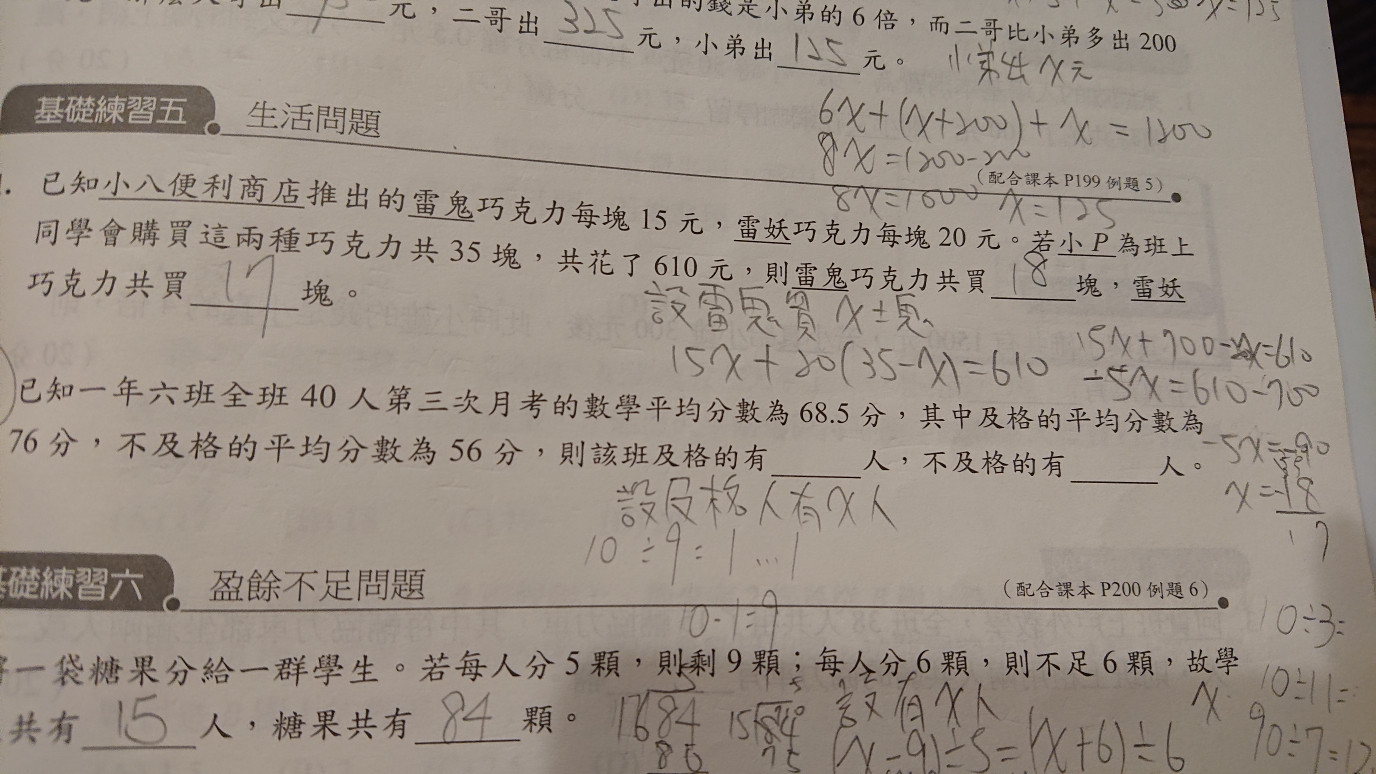 出的錢是小弟的 6 倍，而二哥比小弟多出 200
元，二哥出 325 元，小弟出 125 元。 小弟出 x 元
6x+(x+200)+x=1200
8x=1200-200
基礎練習五 生活問題
（配合課本 P199 例題 5）
8x=1000 x=125
. 已知小八便利商店推出的雷鬼巧克力每塊 15 元，雷妖巧克力每塊 20 元。若小 P 為班上
同學會購買這兩種巧克力共 35 塊，共花了 610 元，則雷鬼巧克力共買 18 塊，雷妖
巧克力共買 17 塊。
設雷鬼買 x
15x+20(35-x)=610
-5x=610-700
-5x=-90
x=18
17
已知一年六班全班 40 人第三次月考的數學平均分數為 68.5 分，其中及格的平均分數為
76 分，不及格的平均分數為 56 分，則該班及格的有 人，不及格的有 人。
設及格人有 x 人
10÷9=1...1
基礎練習六 盈餘不足問題
（配合課本 P200 例題 6）
10-1=9
10÷3=
將一袋糖果分給一群學生。若每人分 5 顆，則剩 9 顆；每人分 6 顆，則不足 6 顆，故學
共有 15 人，糖果共有 84 顆。
設有 x 人
x
10÷11=
(x-9)÷5=(x+6)÷6
90÷7=12